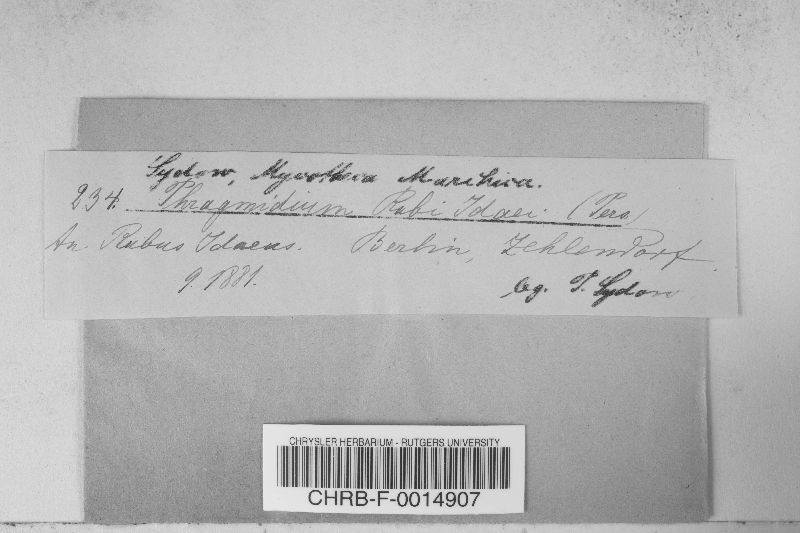 Sydow, Mycotheca Marchica.
234. Phragmidium Rubi Idaei. (Pers)
An Rubus Idaeus. Berlin, Zehlendorf.
9. 1881.
leg. P. Sydow
CHRYSLER HERBARIUM - RUTGERS UNIVERSITY
CHRB-F-0014907